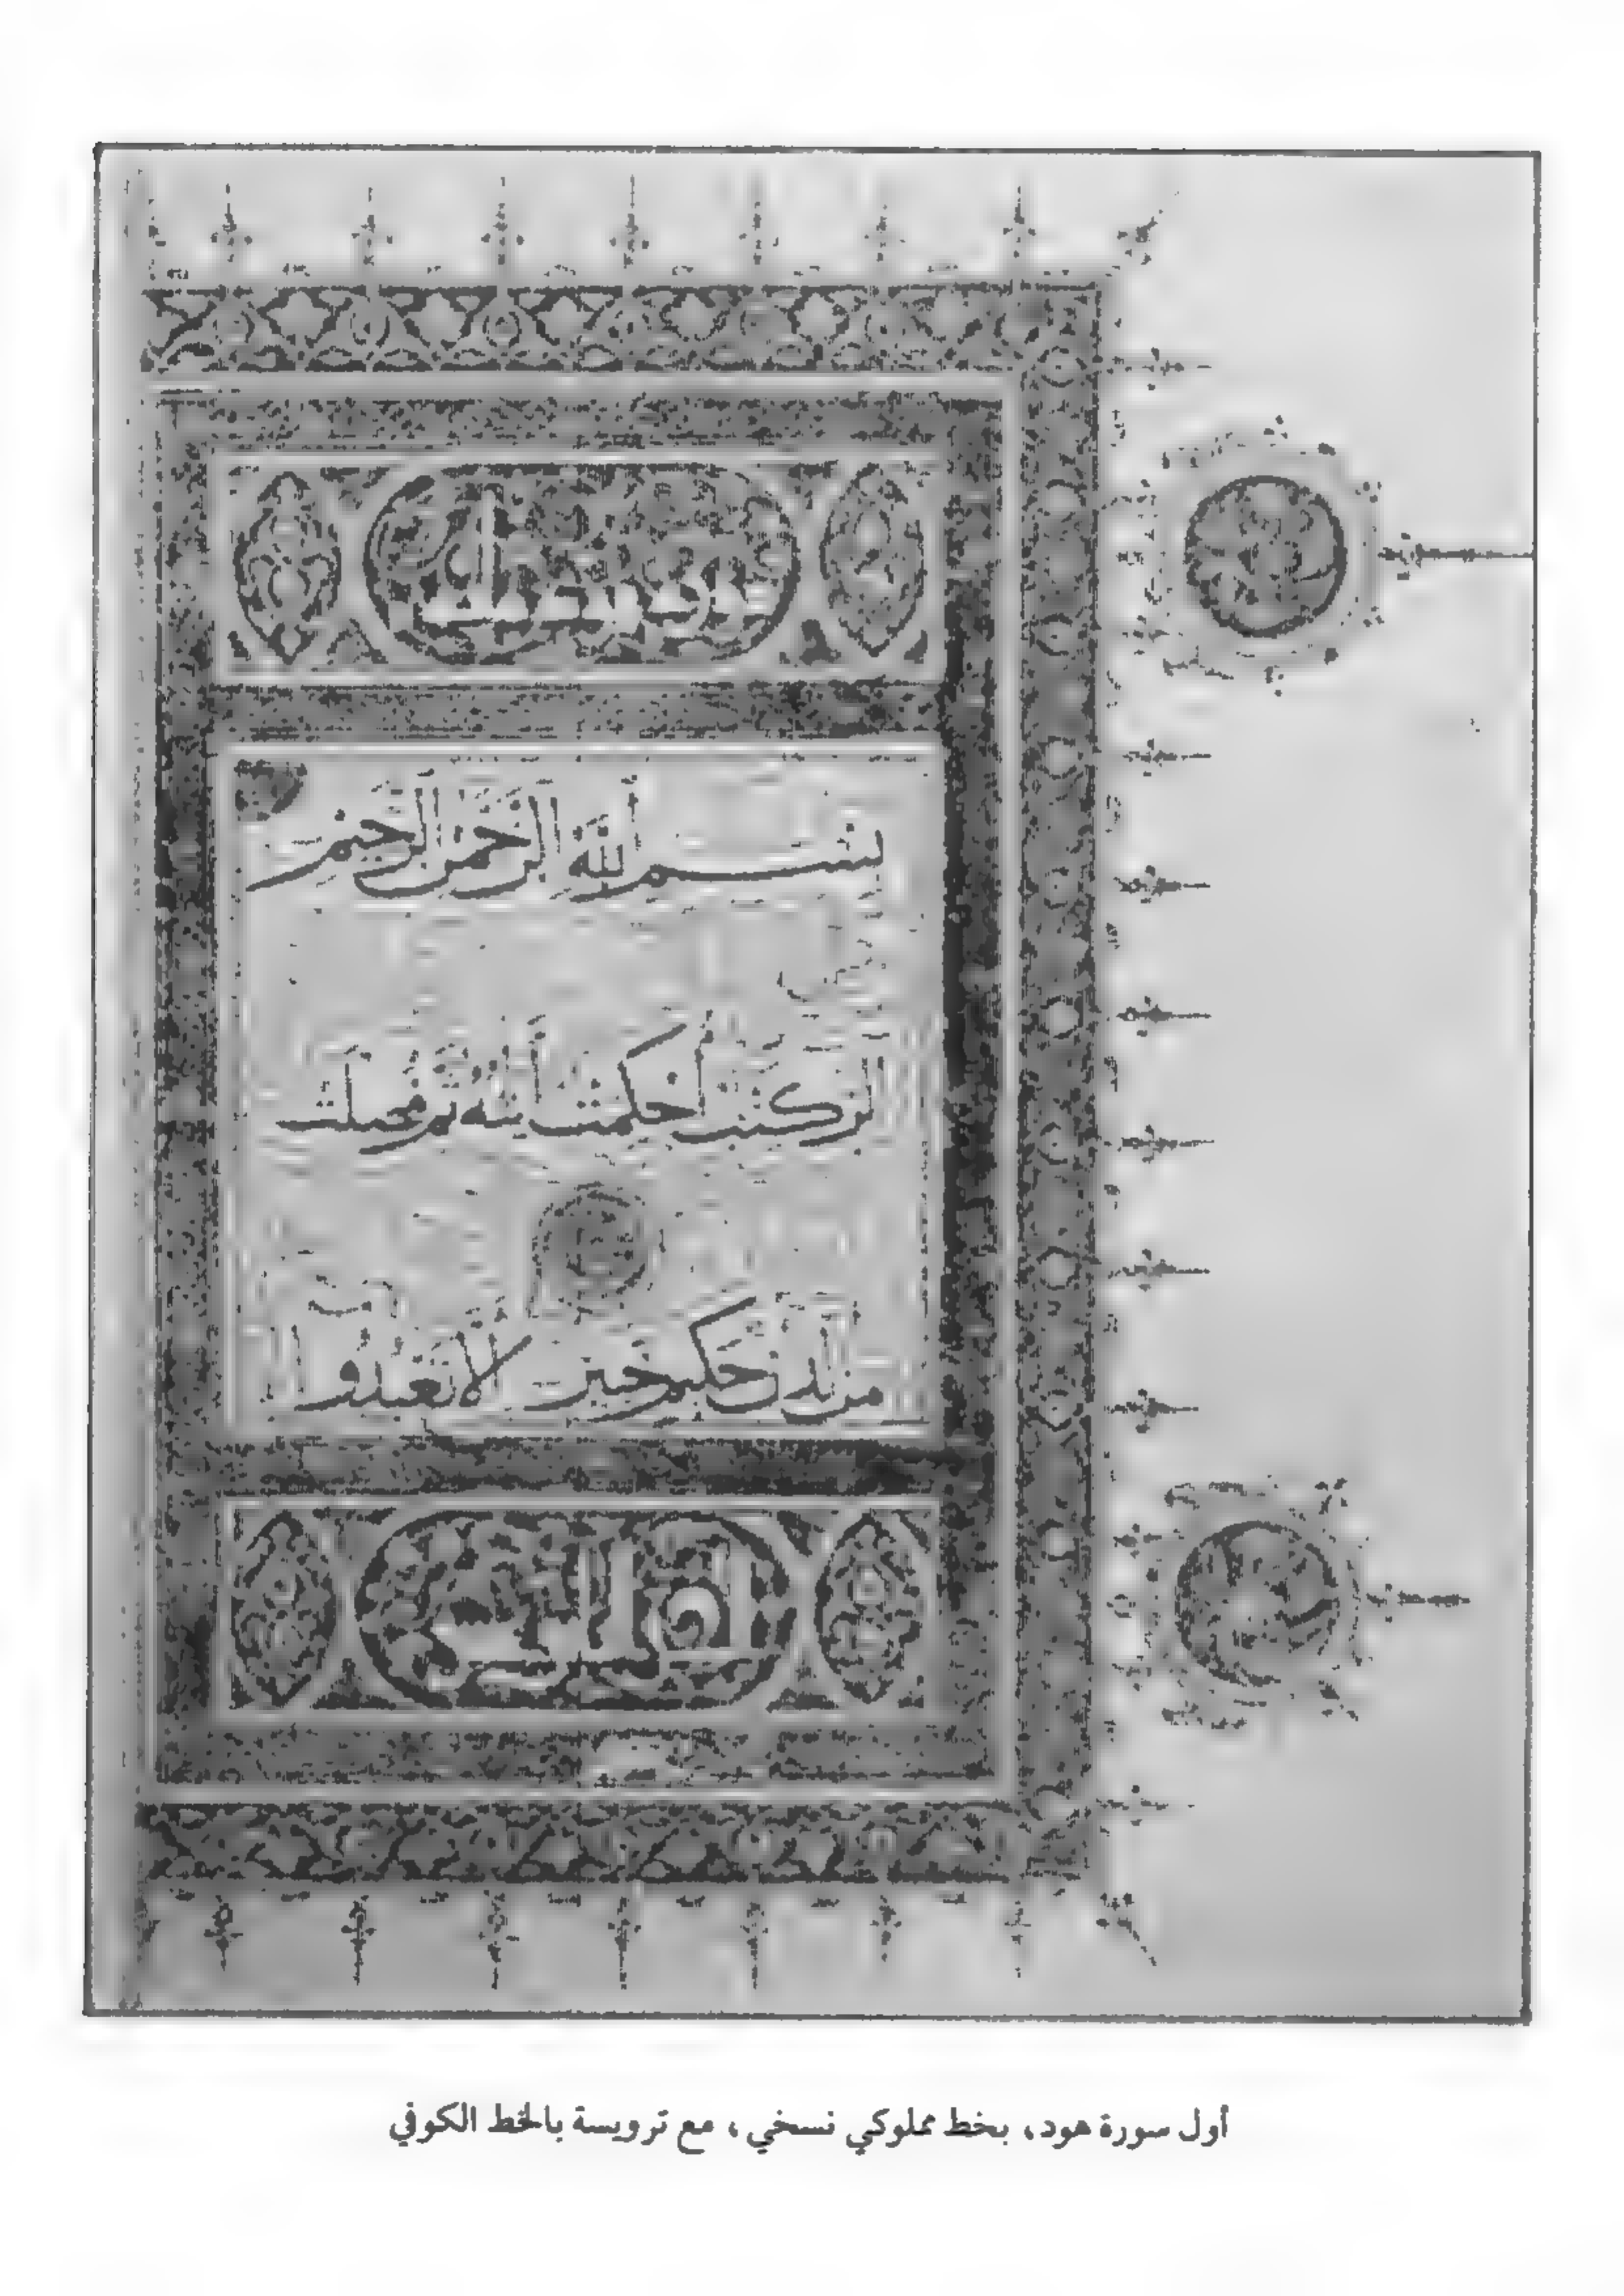 بِسْمِ ٱللَّهِ ٱلرَّحْمَٰنِ ٱلرَّحِيمِ
الر كتب أحكمت آيته ثم فصلت
من لدن حكيم خبير ألا تعبدوا
أول سورة هود، بخط مملوكي نسخي، مع ترويسة بالخط الكوفي